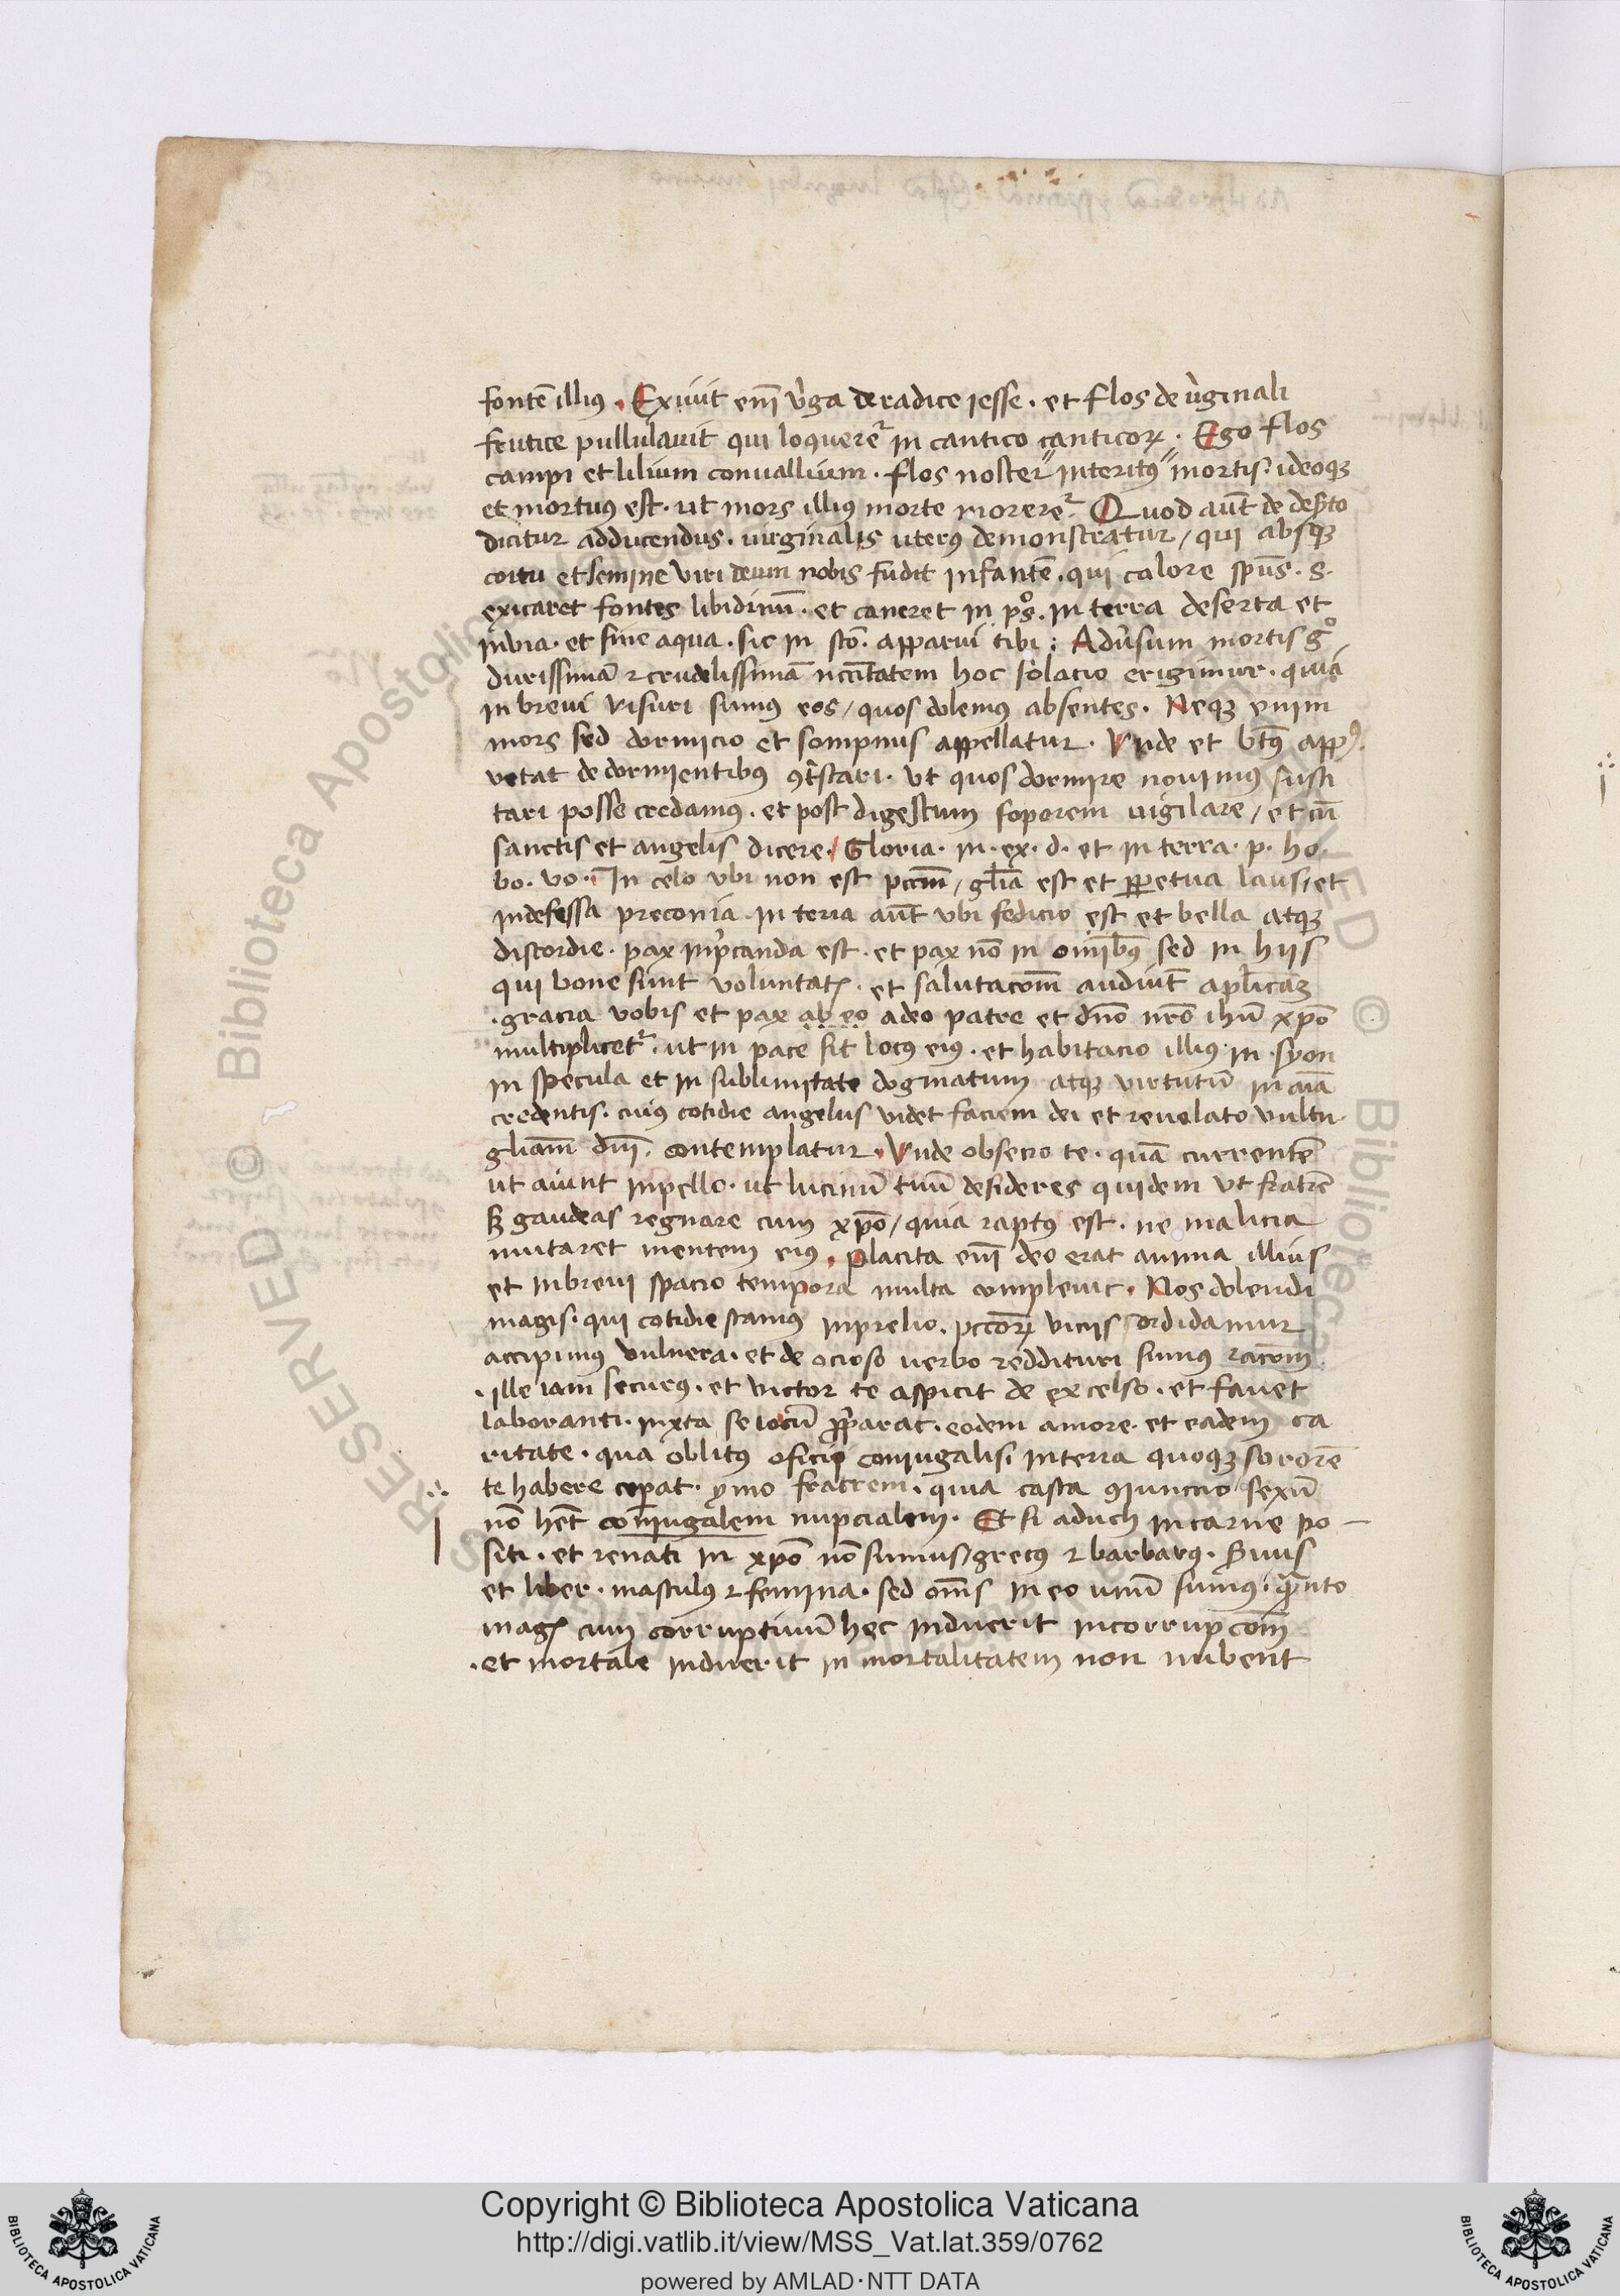 fontē illiꝰ . Exiuit enī v̓ga de radice iesse . et flos de v̓ginali
frutice pullulauit qui loqueret᷑ in cantico canticoꝝ . Ego flos
campi et lilium conuallium . flos noster interitꝰ mortis . ideoqꝫ
et mortuꝰ est . ut mors illiꝰ morte moreret᷑ . Quod aūt de deẜto
dicitur adducendus . uirginalis uterꝰ demonstratur / qui absqꝫ
coitu et semine viri deum nobis fudit infantē . qui calore spūs . s .
exicaret fontes libidinū . et caneret in pso . in terra deserta et
inbia . et sine aqua . sic in sco̅ . apparui tibi : Adūsum mortis gͦ
durissimā ⁊ crudelissimā nccitatem hoc solacio erigimur . quia
in breui visuri sumꝰ eos / quos dolemus absentes . Neqꝫ enim
mors sed dormicio et sompnus appellatur . Vnde et btꝰ appꝰ .
vetat de dormientibus ꝯtstari . vt quos dormire nouimꝰ susci
tari posse credamus . et post digestum soporem uigilare / et cū
sanctis et angelis dicere . Gloria . in . ex . d . et in terra . p . ho .
bo . vo . In celo vbi non est pccm̄ / gl̄ia est et ꝑpetua laus / et
indefessa preconia . in terra aūt vbi sedicio est et bella atqꝫ
discordie . pax inp̓canda est . et pax nō in omībꝰ sed in hiis
qui bone sunt voluntatꝭ . et salutacōm audiūt apl̄icaꝫ
. gracia vobis et pax ab eo adeo patre et dnō nrō ihū xpō
multiplicet᷑ . ut in pace sit locꝰ eiꝰ . et habitacio illiꝰ in syon
in specula et in sublimitate dogmatum atqꝫ virtutū in aīa
credentis . cuiꝰ cotidie angelus videt faciem dei et reuelato vultu
gliam̄ dnī . contemplatur . Vnde obsecro te . quā currentē
ut aiunt inpello . ut lucinū tuū desideres quidem vt fratrē
ꝫ gaudeas regnare cum xpō / quia raptꝰ est . ne malicia
mutaret mentem eiꝰ . placita enī deo erat anima illius
et inbreui spacio tempora multa compleuit . Nos dolendi
magis . qui cotidie stamꝰ inprelio . pccōꝝ viciis sordidamur
accipimus vulnera . et de ocioso uerbo reddituri sumus racōm
. ille iam securꝰ . et victor te aspicit de excelso . et fauet
laboranti . iuxta se locū p̄parat . eodem amore . et eadem ca
ritate . qua oblitꝰ oficii coniugalis . interra quoqꝫ sororē
te habere cepat . ymo fratrem . quia casta ꝯiunctio sexū
nō hēt coniugalem nupcialem . Et si aduch incarne po
siti . et renati in xpō nō sumus / grecꝰ ⁊ barbarꝰ . ẜuus
et liber . masculꝰ ⁊ femina . sed om̄s in eo unū sumus . q̄nto
magꝭ cum corruptiuū hec induerit incorrupcōm̄
. et mortale induerit in mortalitatem non nubent
Copyright © Biblioteca Apostolica Vaticana
http://digi.vatlib.it/view/MSS_Vat.lat.359/0762
powered by AMLAD·NTT DATA